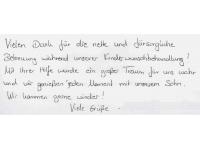 Vielen Dank für die nette und fürsorgliche
Betreuung während unserer Kinderwunschbehandlung!
Mit Ihrer Hilfe wurde ein großer Traum für uns wahr
und wir genießen jeden Moment mit unserem Sohn.
Wir kommen gerne wieder!
Viele Grüße